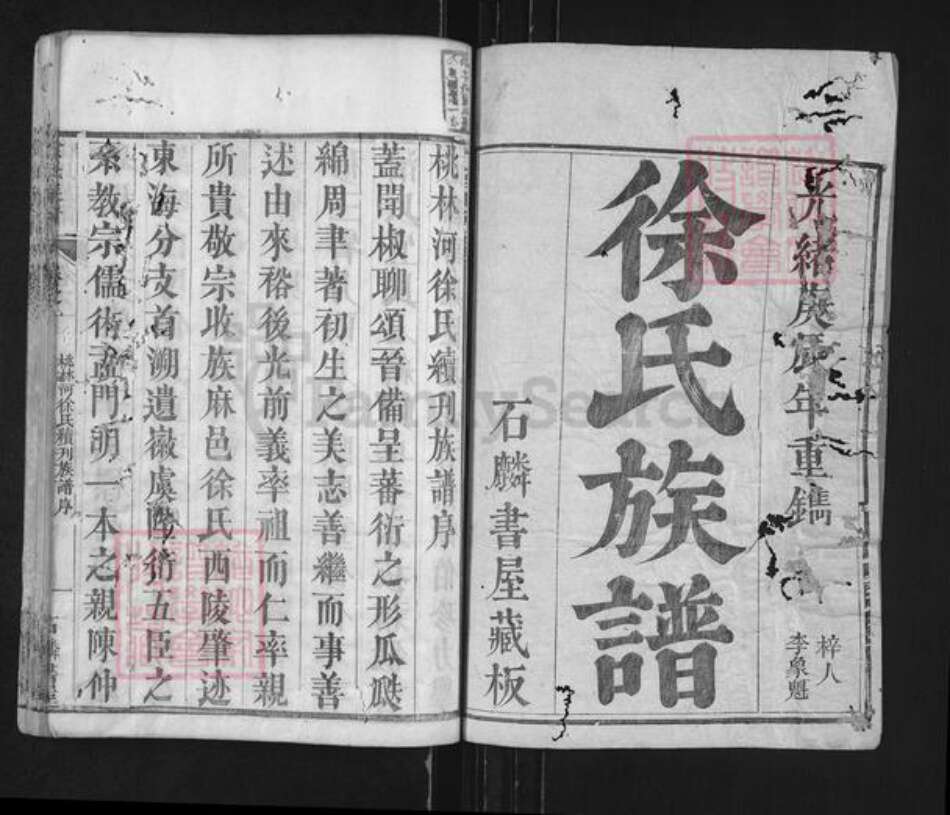 光緒庚辰年重鐫
梓人
李象魁
徐氏族譜
石麟書屋藏板
桃林河徐氏續刊族譜序
蓋聞椒聊頌晉備呈蕃衍之形瓜瓞
綿周聿著初生之美志善繼而事善
述由來裕後光前義率祖而仁率親
所貴敬宗收族麻邑徐氏西陵肇迹
東海分支首溯遺徽虞陛衍五臣之
教宗儒術孟門明一本之親陳仲
桃林河徐氏續刊族譜序
一
FamilySearch